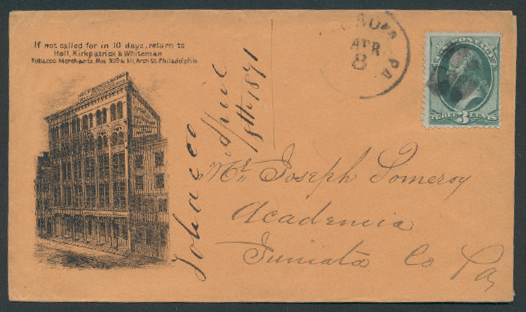 If not called for in 10 days, return to
Hall, Kirkpatrick & Whiteman
Tobacco Merchants, Nos. 309 & 311, Arch St. Philadelphia
APR
8
PA
THREE 3 CENTS
Tobacco
April
8th 1871
Mr Joseph Pomeroy
Academia
Juniata Co Pa